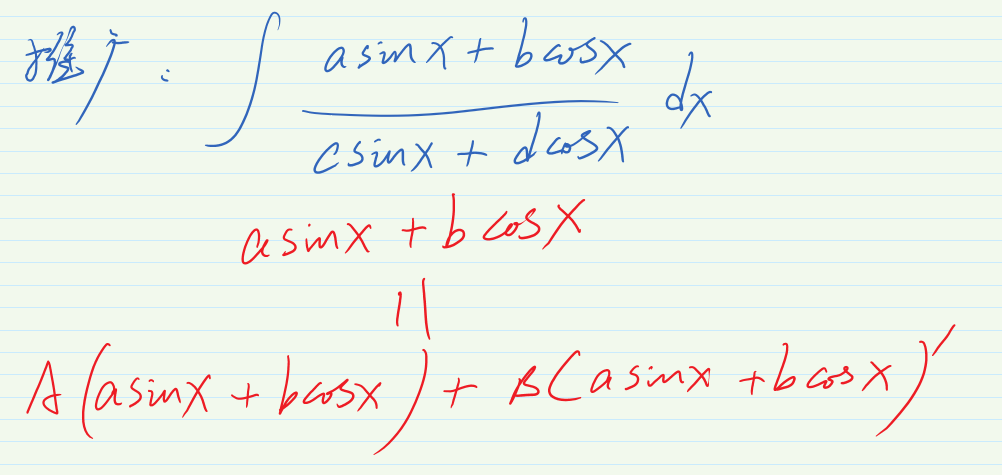 推广: ∫ (a sin x + b cos x)/(c sin x + d cos x) dx
a sin x + b cos x
||
A(a sin x + b cos x) + B(a sin x + b cos x)′